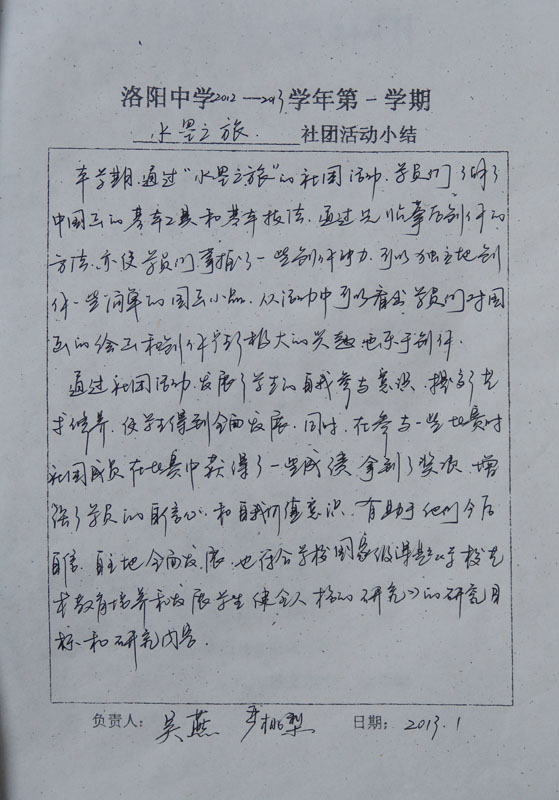 洛阳中学2012—2013学年第一学期
水墨之旅 社团活动小结
本学期，通过“水墨之旅”的社团活动，学员们了解了
中国画的基本工具和基本技法，通过先临摹后创作的
方法，亦使学员们掌握了一些创作能力，可以独立地创
作一些简单的国画小品，从活动中可以看出学员们对国
画的绘画和创作有了极大的兴趣也乐于创作。
通过社团活动，发展了学生的自我参与意识，提高了艺
术修养，使学生得到全面发展，同时，在参与一些比赛时
社团成员在比赛中获得了一些成绩，拿到了奖项，增
强了学员的自信心和自我价值意识，有助于他们今后
自信、自主地全面发展，也符合学校国家级课题《学校艺
术教育培养和发展学生健全人格的研究》的研究目
标和研究内容。
负责人： 吴燕 日期： 2013.1